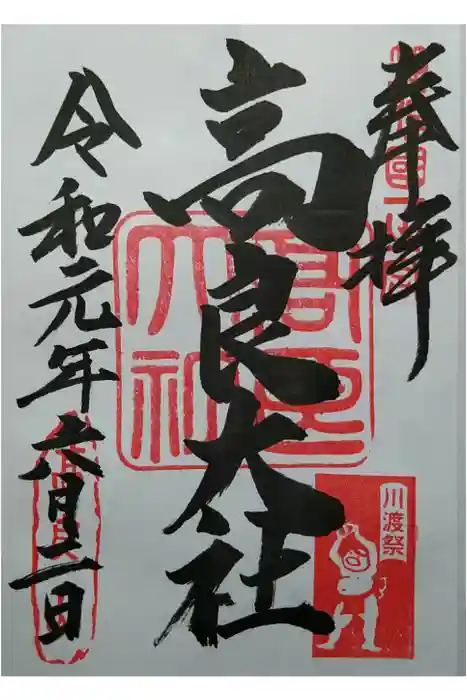 奉拝
高良大社
令和元年六月二日
高良
大社
川渡祭